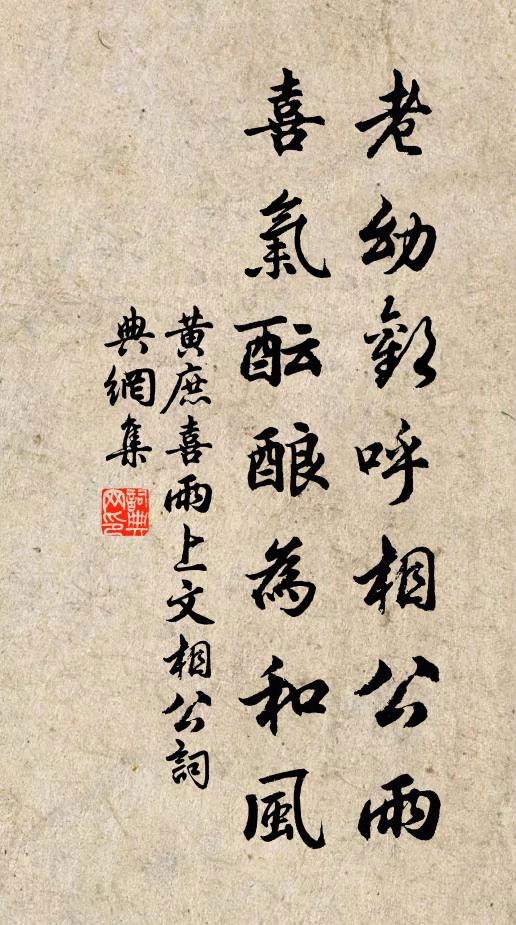 老幼歡呼相公雨
喜氣酝酿為和風
黃庶喜雨上文相公詞
典網集
詞典網印